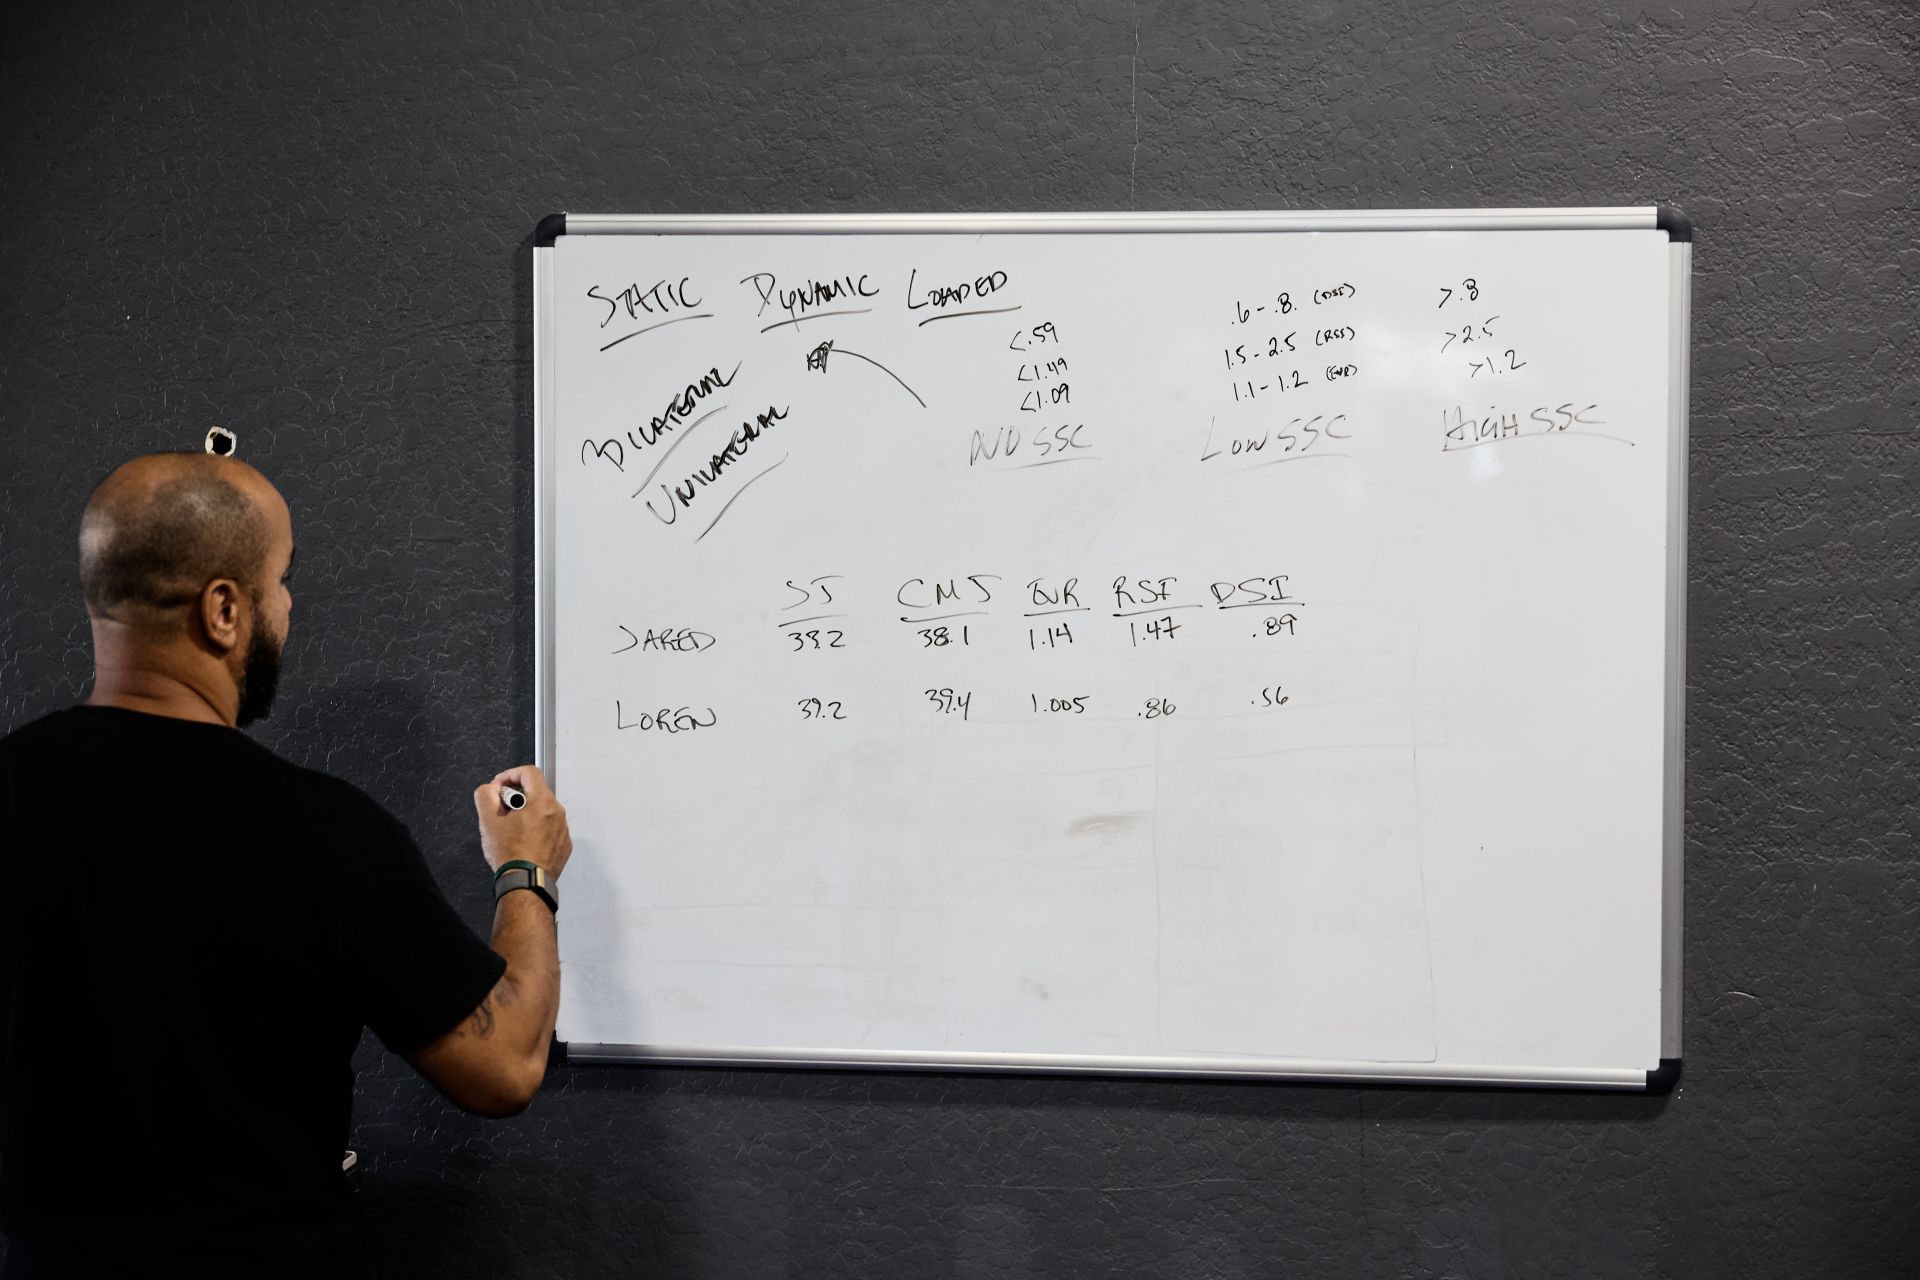 STATIC DYNAMIC LOADED
BILATERAL
UNILATERAL
<.59
<1.49
<1.09
NO SSC
.6-.8 (DSI)
1.5-2.5 (RSI)
1.1-1.2 (EUR)
LOW SSC
>.8
>2.5
>1.2
HIGH SSC
SJ CMJ EUR RSI DSI
JARED 38.1 1.14 1.47 .89
LOREN 39.2 39.4 1.005 .86 .56